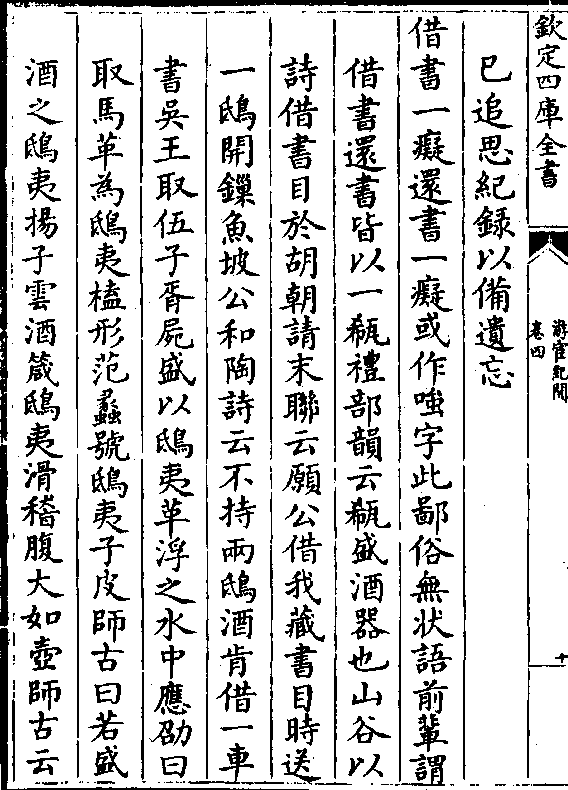 欽定四庫全書
游宦紀聞
卷四
十
已追思紀録以備遺忘
借書一癡還書一癡或作嗤字此鄙俗無狀語前軰謂
借書還書皆以一瓻禮部韻云瓻盛酒器也山谷以
詩借書目於胡朝請末聯云願公借我藏書目時送
一鴟開鏁魚坡公和陶詩云不持兩鴟酒肯借一車
書吳王取伍子胥屍盛以鴟夷革浮之水中應劭曰
取馬革為鴟夷榼形范蠡號鴟夷子皮師古曰若盛
酒之鴟夷揚子雲酒箴鴟夷滑稽腹大如壺師古云